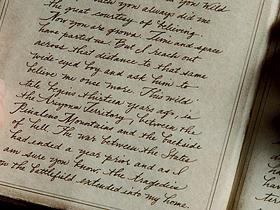 such you always did me
the great courtesy of believing.
Now you're grown. Time and space
have parted us. But I reach out
across that distance to that same
wide-eyed boy and ask him to
believe me once more. This wild
tale begins thirteen years ago, in
the Arizona Territory, between the
Pinaleno Mountains and the backside
of hell. The war between the States
had ended a year prior and as I
am sure you know, the tragedies
the battlefield extended into my home.